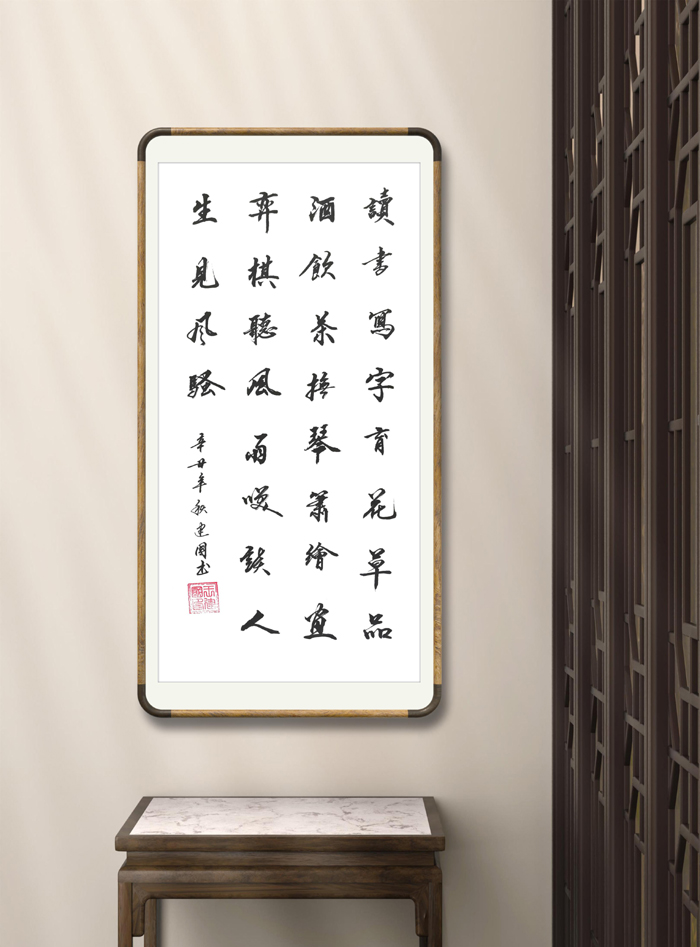 讀書寫字育花草品
酒飲茶撫琴簫繪畫
弈棋聽風雨咲談人
生見风騷
辛丑年秋建國书